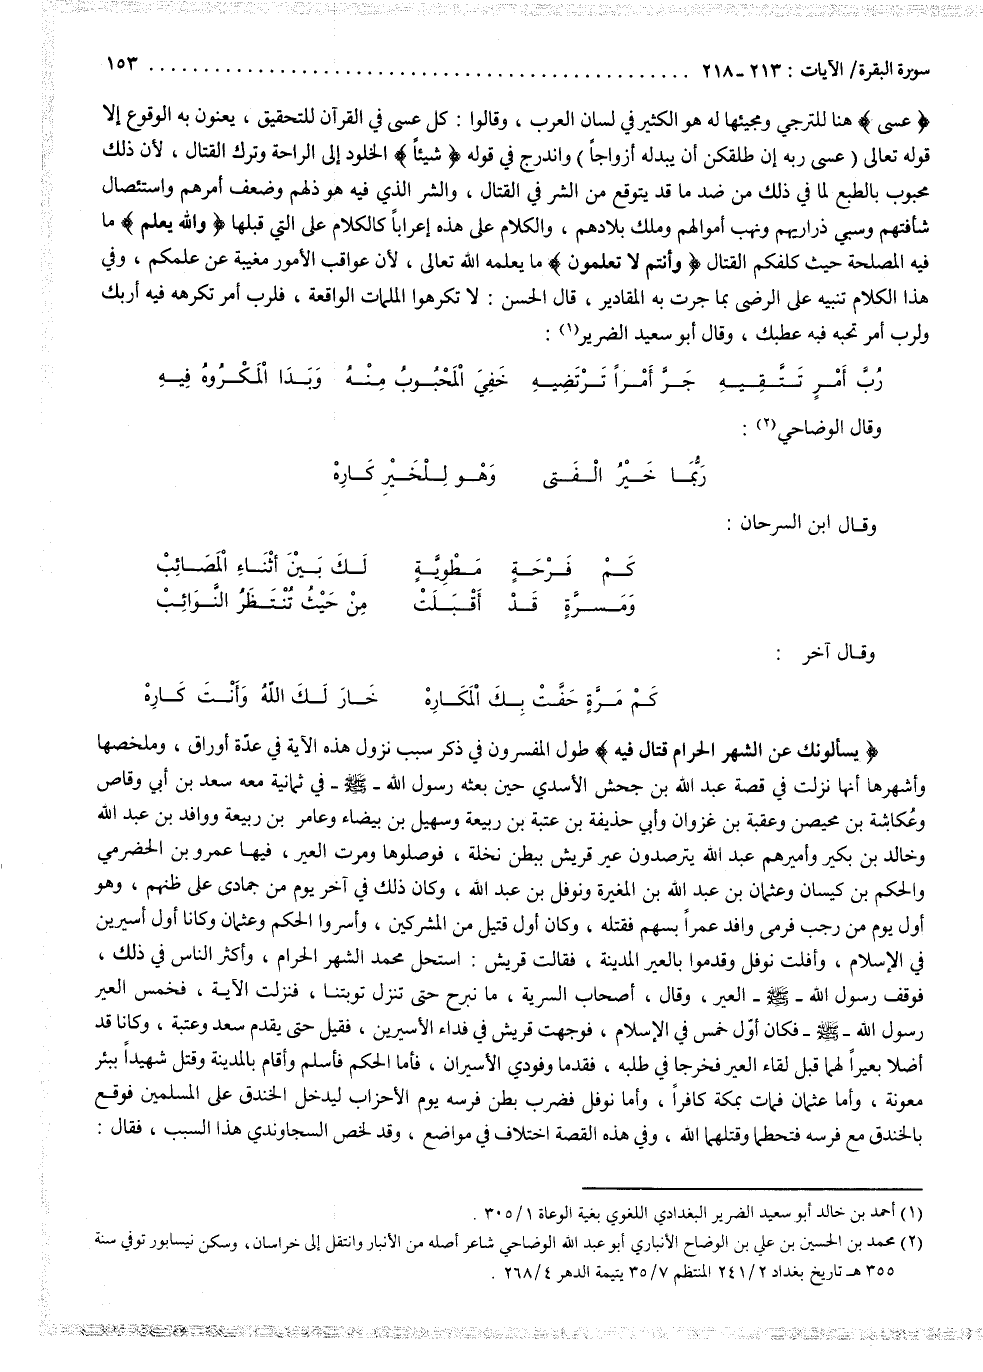 سورة البقرة/ الآيات : ٢١٣ ـ ٢١٨ ................................................ ١٥٣
﴿ عسى ﴾ هنا للترجي ومجيئها له هو الكثير في لسان العرب ، وقالوا : كل عسى في القرآن للتحقيق ، يعنون به الوقوع إلا
قوله تعالى ( عسى ربه إن طلقكن أن يبدله أزواجاً ) واندرج في قوله ﴿ شيئاً ﴾ الخلود إلى الراحة وترك القتال ، لأن ذلك
محبوب بالطبع لما في ذلك من ضد ما قد يتوقع من الشر في القتال ، والشر الذي فيه هو ذلهم وضعف أمرهم واستئصال
شأفتهم وسبي ذراريهم ونهب أموالهم وملك بلادهم ، والكلام على هذه إعراباً كالكلام على التي قبلها ﴿ والله يعلم ﴾ ما
فيه المصلحة حيث كلفكم القتال ﴿ وأنتم لا تعلمون ﴾ ما يعلمه الله تعالى ، لأن عواقب الأمور مغيبة عن علمكم ، وفي
هذا الكلام تنبيه على الرضى بما جرت به المقادير ، قال الحسن : لا تكرهوا الملمات الواقعة ، فلرب أمر تكرهه فيه أربك
ولرب أمر تحبه فيه عطبك ، وقال أبو سعيد الضرير(١) :
رُبَّ أَمْرٍ تَتَّقِيهِ جَرَّ أَمْراً تَرْتَضِيهِ خَفِيَ الْمَحْبُوبُ مِنْهُ وَبَدَا الْمَكْرُوهُ فِيهِ
وقال الوضاحي(٢) :
رَبُّمَا خَيْرُ الْفَتى وَهْو لِلْخَيْرِ كَارِهْ
وقال ابن السرحان :
كَمْ فَرْحَةٍ مَطْوِيَّةٍ لَكَ بَيْنَ أثْنَاءِ الْمَصَائِبْ
وَمَسرَّةٍ قَدْ أَقْبَلَتْ مِنْ حَيْثُ تُنْتَظَرُ النَّوَائِبْ
وقال آخر :
كَمْ مَرَّةٍ حَفَّتْ بِكَ الْمَكَارِهْ خَارَ لَكَ اللَّهُ وَأَنْتَ كَارِهْ
﴿ يسألونك عن الشهر الحرام قتال فيه ﴾ طول المفسرون في ذكر سبب نزول هذه الآية في عدّة أوراق ، وملخصها
وأشهرها أنها نزلت في قصة عبد الله بن جحش الأسدي حين بعثه رسول الله ـ ﷺ ـ في ثمانية معه سعد بن أبي وقاص
وعُكاشة بن محيصن وعقبة بن غزوان وأبي حذيفة بن عتبة بن ربيعة وسهيل بن بيضاء وعامر بن ربيعة ووافد بن عبد الله
وخالد بن بكير وأميرهم عبد الله يترصدون عير قريش ببطن نخلة ، فوصلوها ومرت العير ، فيها عمرو بن الحضرمي
والحكم بن كيسان وعثمان بن عبد الله بن المغيرة ونوفل بن عبد الله ، وكان ذلك في آخر يوم من جمادى على ظنهم ، وهو
أول يوم من رجب فرمى وافد عمراً بسهم فقتله ، وكان أول قتيل من المشركين ، وأسروا الحكم وعثمان وكانا أول أسيرين
في الإسلام ، وأفلت نوفل وقدموا بالعير المدينة ، فقالت قريش : استحل محمد الشهر الحرام ، وأكثر الناس في ذلك ،
فوقف رسول الله ـ ﷺ ـ العير ، وقال ، أصحاب السرية ، ما نبرح حتى تنزل توبتنا ، فنزلت الآية ، فخمس العير
رسول الله ـ ﷺ ـ فكان أوّل خمس في الإسلام ، فوجهت قريش في فداء الأسيرين ، فقيل حتى يقدم سعد وعتبة ، وكانا قد
أضلا بعيراً لهما قبل لقاء العير فخرجا في طلبه ، فقدما وفودي الأسيران ، فأما الحكم فأسلم وأقام بالمدينة وقتل شهيداً ببئر
معونة ، وأما عثمان فمات بمكة كافراً ، وأما نوفل فضرب بطن فرسه يوم الأحزاب ليدخل الخندق على المسلمين فوقع
بالخندق مع فرسه فتحطما وقتلهما الله ، وفي هذه القصة اختلاف في مواضع ، وقد لخص السجاوندي هذا السبب ، فقال :
(١) أحمد بن خالد أبو سعيد الضرير البغدادي اللغوي بغية الوعاة ٣٠٥/١ .
(٢) محمد بن الحسين بن علي بن الوضاح الأنباري أبو عبد الله الوضاحي شاعر أصله من الأنبار وانتقل إلى خراسان، وسكن نيسابور توفي سنة
٣٥٥ هـ تاريخ بغداد ٢٤١/٢ المنتظم ٣٥/٧ يتيمة الدهر ٢٦٨/٤ .